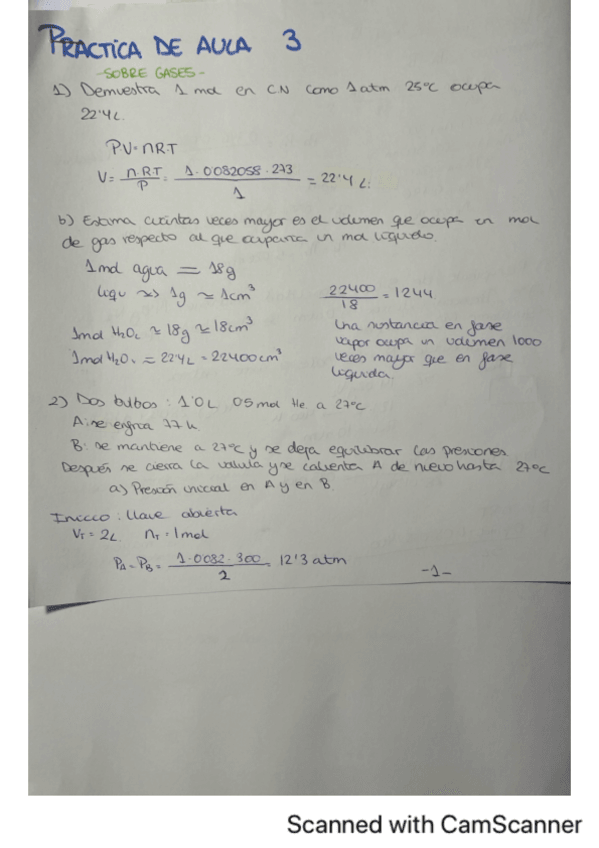 PRACTICA DE AULA 3
-SOBRE GASES-
1) Demuestra 1 mol en CN como 1 atm 25°C ocupa
22'4L.
PV=nRT
V= nRT/P = 1·0'082058·273/1 = 22'4 L.
b) Estima cuántas veces mayor es el volumen que ocupa un mol
de gas respecto al que ocuparía un mol líquido.
1mol agua = 18g
líqu → 1g ≈ 1cm³
1mol H₂OL ≈ 18g ≈ 18cm³
1mol H₂Ov = 22'4L = 22400cm³
22400/18 = 1244
Una sustancia en fase
vapor ocupa un volumen 1000
veces mayor que en fase
líquida.
2) Dos bulbos: 1'0L 0'5mol He a 27°C
A: se enfría 77 K
B: se mantiene a 27°C y se deja equilibrar las presiones
Después se cierra la válvula y se calienta A de nuevo hasta 27°C
a) Presión inicial en A y en B
Inicio: llave abierta
VT = 2L nT = 1mol
PA = PB = 1·0'082·300/2 = 12'3 atm
-1-
Scanned with CamScanner